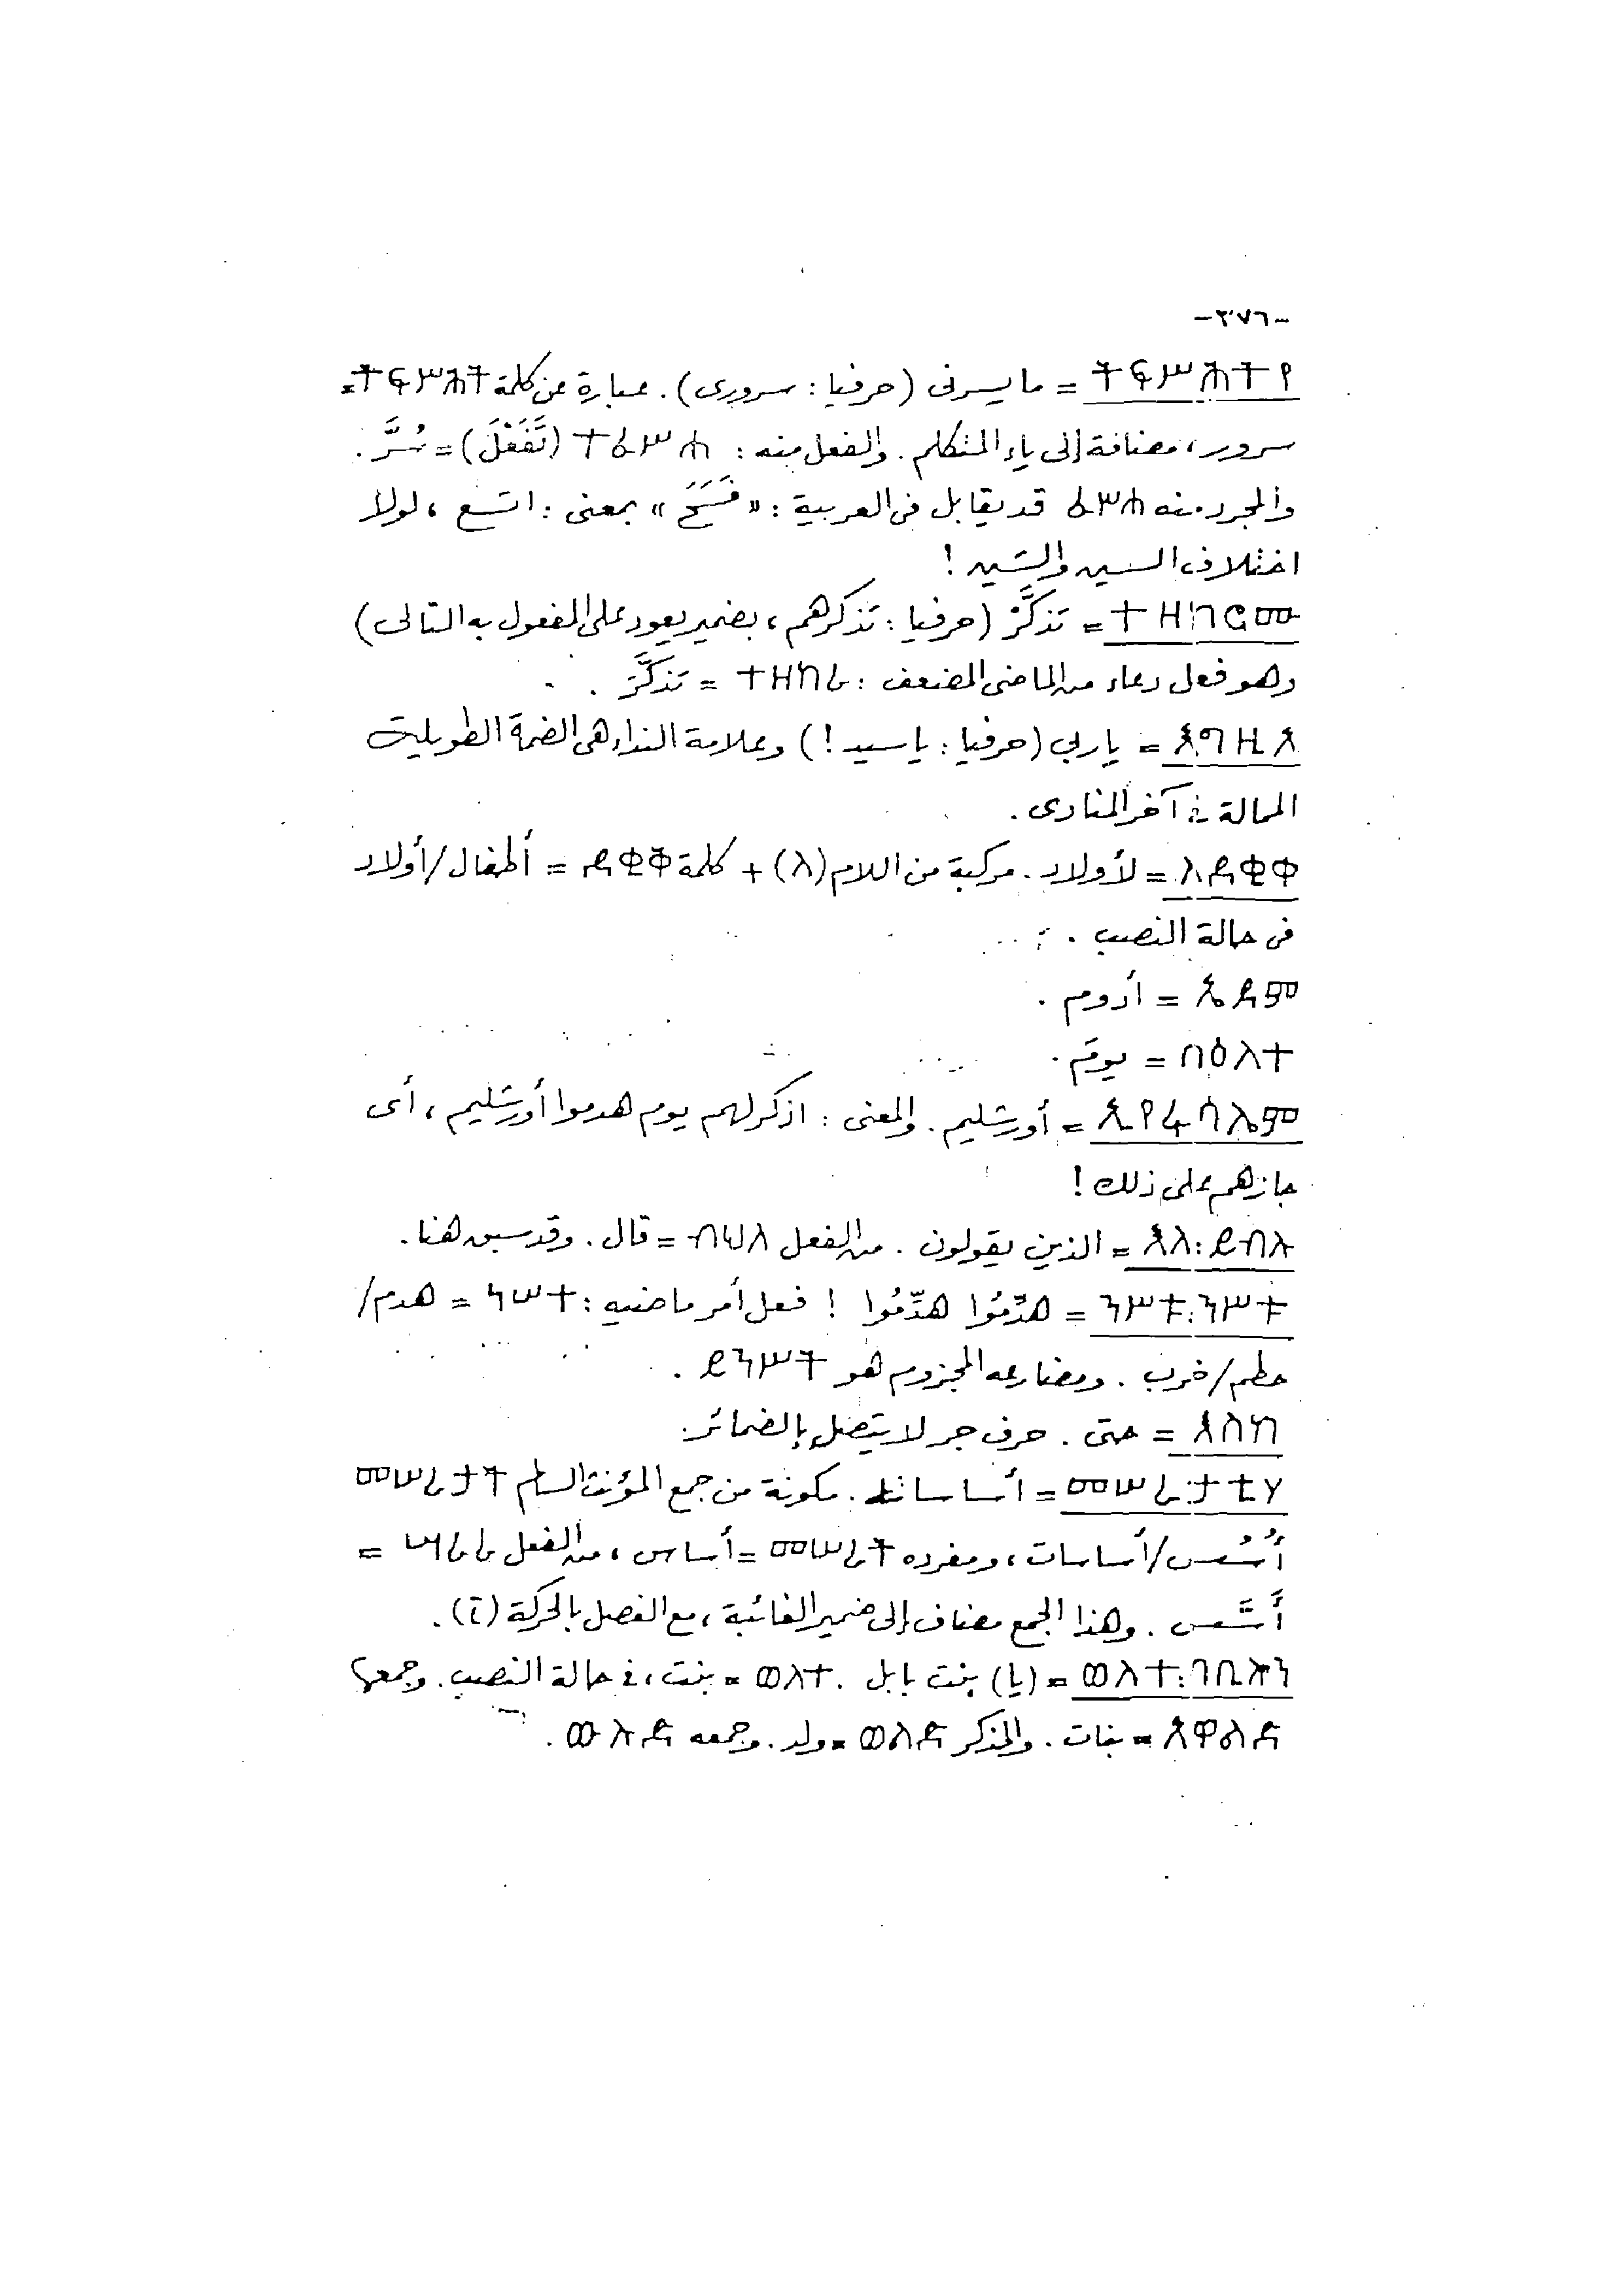 -٣٧٦-
ትፍሥሕትየ = ما يسرنى (حرفيا: سرورى). عبارة عن كلمة ትፍሥሕት =
سرور، مضافة إلى ياء المتكلم. والفعل منه: ተፈሥሐ (تَفَعْلَ) = سُرَّ.
والمجرد منه ፈሥሐ قد يقابل فى العربية: «فَسَحَ» بمعنى: اتسع، لولا
اختلاف السين والشين!
ተዘከሮሙ = تذكَّرْ (حرفيا: تذكرهم، بضمير يعود على المفعول به التالى)
وهو فعل دعاء من الماضى المضعف: ተዘከረ = تذكَّرَ.
እግዚኦ = يا ربي (حرفيا: يا سيد!) وعلامة النداء هى الضمة الطويلة
الممالة فى آخر المنادى.
ለደቂቀ = لأولاد. مركبة من اللام (ለ) + كلمة ደቂቀ = أطفال/أولاد
فى حالة النصب.
ኤዶም = أدوم.
በዕለተ = يومَ.
ኢየሩሳሌም = أورشليم. والمعنى: اذكر لهم يوم هدموا أورشليم، أى
جازهم على ذلك!
እለ፡ይብሉ = الذين يقولون. من الفعل ብህለ = قال. وقد سبق هنا.
ንሥቱ፡ንሥቱ = هدِّمُوا هدِّمُوا! فعل أمر ماضيه: ነሠተ = هدم/
حطم/خرب. ومضارعه المجزوم هو ይንሥት.
እስከ = حتى. حرف جر لا يتصل بالضمائر.
መሠረታቲሃ = أساساتها. مكونة من جمع المؤنث السالم መሠረታት
أُسُس/أساسات، ومفرده መሠረት = أساس، من الفعل ሠረረ =
أسَّس. وهذا الجمع مضاف إلى ضمير الغائبة، مع الفصل بالحركة (ī).
ወለተ፡ባቢሎን = (يا) بنت بابل. ወለተ = بنت، فى حالة النصب. وجمعها
አዋልድ = بنات. والمذكر ወልድ = ولد. وجمعه ውሉድ.